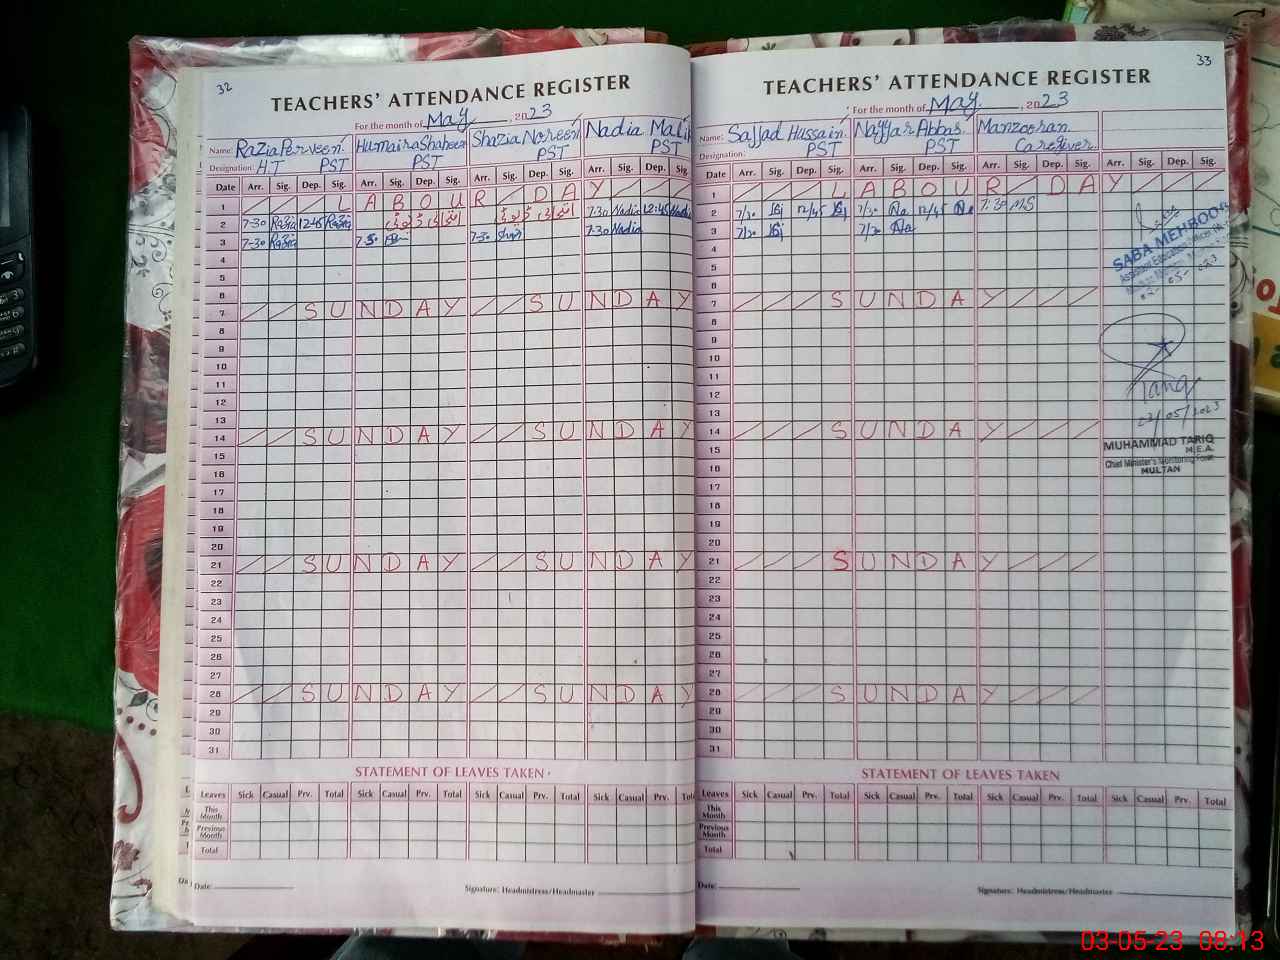 32
TEACHERS' ATTENDANCE REGISTER
For the month of May, 2023
Name: Razia Perveen. Humaira Shaheen Shazia Noreen Nadia Malik
Designation: H.T PST PST PST PST
Date Arr. Sig. Dep. Sig. Arr. Sig. Dep. Sig. Arr. Sig. Dep. Sig. Arr. Sig. Dep. Sig.
1 L A B O U R D A Y
2 7-30 Razia 12:45 Razia 7:30 Nadia 12:45 Nadia
3 7-30 Razia 7-30 7-30 Nadia
4
5
6
7 S U N D A Y S U N D A Y
8
9
10
11
12
13
14 S U N D A Y S U N D A Y
15
16
17
18
19
20
21 S U N D A Y S U N D A Y
22
23
24
25
26
27
28 S U N D A Y S U N D A Y
29
30
31
STATEMENT OF LEAVES TAKEN
Leaves Sick Casual Prv. Total Sick Casual Prv. Total Sick Casual Prv. Total Sick Casual Prv. Total
This Month
Previous Month
Total
Date: Signature: Headmistress/Headmaster
33
TEACHERS' ATTENDANCE REGISTER
For the month of May, 2023
Name: Sajjad Hussain. Nayyar Abbas. Manzooran
Designation: PST PST Caregiver
Date Arr. Sig. Dep. Sig. Arr. Sig. Dep. Sig. Arr. Sig. Dep. Sig. Arr. Sig. Dep. Sig.
1 L A B O U R D A Y
2 7/30 12/45 7/30 12/45 7:30 MS
3 7/30 7/30
4
5
6
7 S U N D A Y
8
9
10
11
12
13
14 S U N D A Y
15
16
17
18
19
20
21 S U N D A Y
22
23
24
25
26
27
28 S U N D A Y
29
30
31
SABA MEHBOOB
Assistant Education Officer
Tariq
03/05/2023
MUHAMMAD TARIQ
M.E.A.
Chief Minister's Monitoring Force
MULTAN
STATEMENT OF LEAVES TAKEN
Leaves Sick Casual Prv. Total Sick Casual Prv. Total Sick Casual Prv. Total Sick Casual Prv. Total
This Month
Previous Month
Total
Date: Signature: Headmistress/Headmaster
03-05-23 08:13